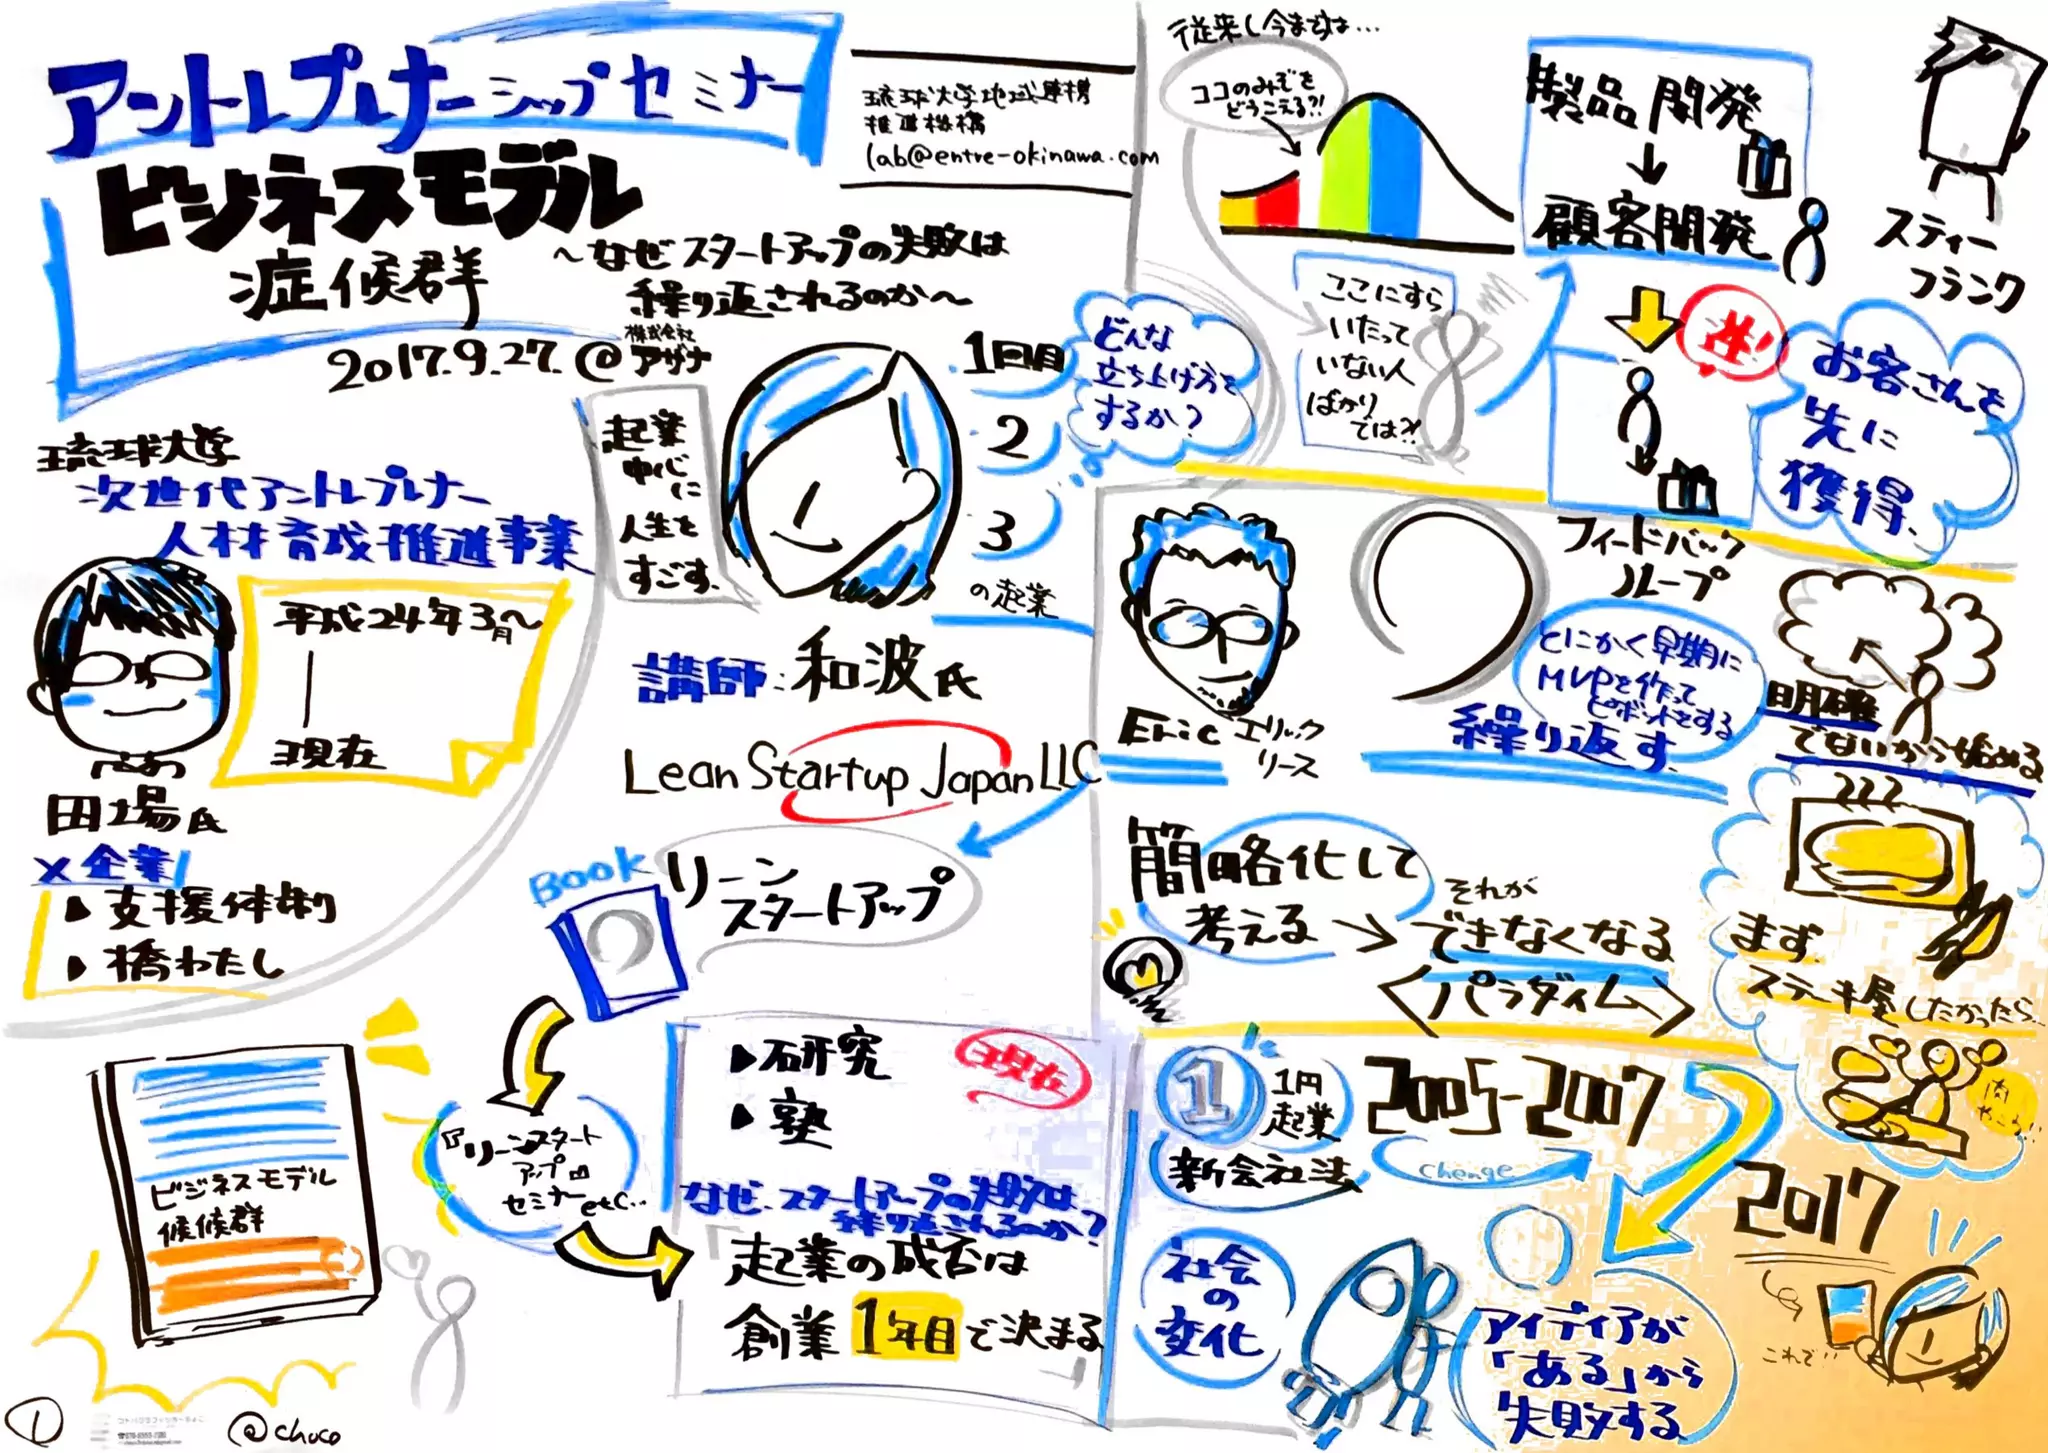 アントレプレナーシップセミナー
ビジネスモデル
症候群
～なぜスタートアップの失敗は
繰り返されるのか～
2017.9.27.@
株式会社
アザナ
琉球大学地域連携
推進機構
lab@entre-okinawa.com
琉球大学
次世代アントレプレナー
人材育成推進事業
平成24年3月～
現在
田場氏
×企業
▶支援体制
▶橋わたし
起業
中心に
人生を
すごす.
1回目
2
3
の起業
どんな
立ち上げ方を
するか?
講師:和波氏
Lean Startup Japan LLC
BOOK
リーン
スタートアップ
ビジネスモデル
候候群
『リーンスタート
アップ』
セミナー etc...
▶研究
▶塾
現在
なぜ、スタートアップの失敗は
繰り返されるのか?
起業の成否は
創業1年目で決まる
1
@choco
従来し今までは…
ココのみぞを
どうこえる?!
製品開発
↓
顧客開発
スティー
フランク
ここにすら
いたって
いない人
ばかり
では?!
逆!
お客さんを
先に
獲得.
Eric エリック
リース
フィードバック
ループ
とにかく早期に
MVPを作って
ピボットをする
繰り返す.
明確
でないから始める
簡略化して
考える→
それが
できなくなる
<パラダイム>
まず.
ステーキ屋したかったら..
肉
やこう!!
1
1円
起業
新会社法
2005-2007
Chenge
2017
社会
の
変化
アイディアが
「ある」から
失敗する
これで!!